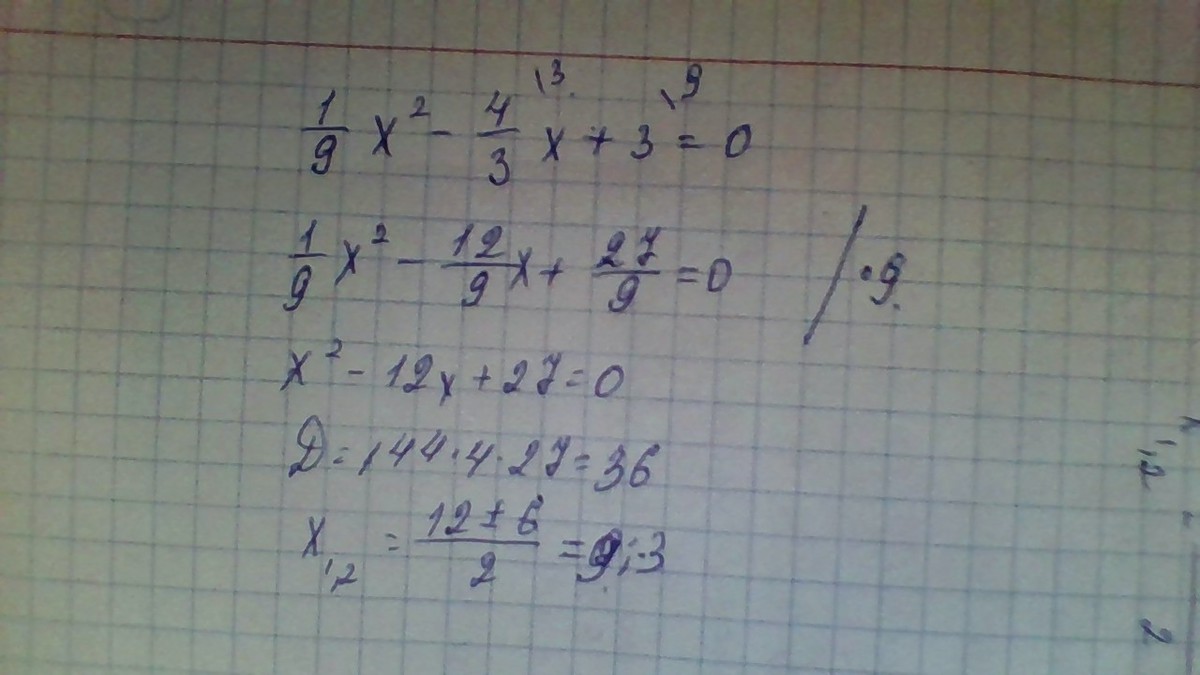 1/9 x² - 4/3 \3 x + 3 \9 = 0
1/9 x² - 12/9 x + 27/9 = 0 / · 9
x² - 12x + 27 = 0
D = 144 · 4 · 27 = 36
x₁,₂ = (12 ± 6)/2 = 9; 3